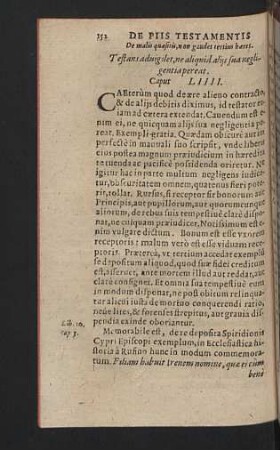 152 DE PIIS TESTAMENTIS
De malè quæsitis, non gaudet tertius hæres.
Testans advigilet, ne aliquid alijs sua negli-
gentia pereat.
Caput LIIII.
CÆterùm quod de ære alieno contracto,
& de alijs debitis diximus, id testator et-
iam ad cætera extendat. Cavendum est e-
nim ei, ne quicquam alijs sua negligentia pe-
reat. Exempli gratia. Quædam obscurè aut in-
perfectè in manuali suo scripsit, unde liberi
eius postea magnum præiudicium in hæredi-
tate tuenda ac pacificè possidenda
igitur hac in parte multum negligens
obscuritatem omnem, quatenus fieri pote-
rit, tollat. Rursus, si receptor sit bonorum aut
Principis, aut pupillorum, aut quorumcunque
aliorum, de rebus suis tempestiuè clarè dispo-
nat, ne cuiquam præiudicet. Notissimum est
nim vulgare dictum. Bonum est esse virum
receptoris: malum verò est esse viduam rece-
ptoris. Præterea, ut tertium accedat exemplum,
se depositum aliquod, quod suæ fidei creditum
est, asservet, ante mortem illud aut reddat, aut
clarè consignet. Et omnia sua tempestiuè eum
in modum disponat, ne post obitum relinquat
alieni iusta de mortuo conquerendi ratio,
neue lites, & forenses strepitus, aut gravia dis-
pendia exinde oboriantur.
Lib. 10. Memorabile est, de re deposita Spiridionis
cap. 5. Cypri Episcopi exemplum, in Ecclesiastica hi-
storia à Rufino hunc in modum commemora-
tum. Filiam habuit Irenem nomine, quæ ei cùm
benè